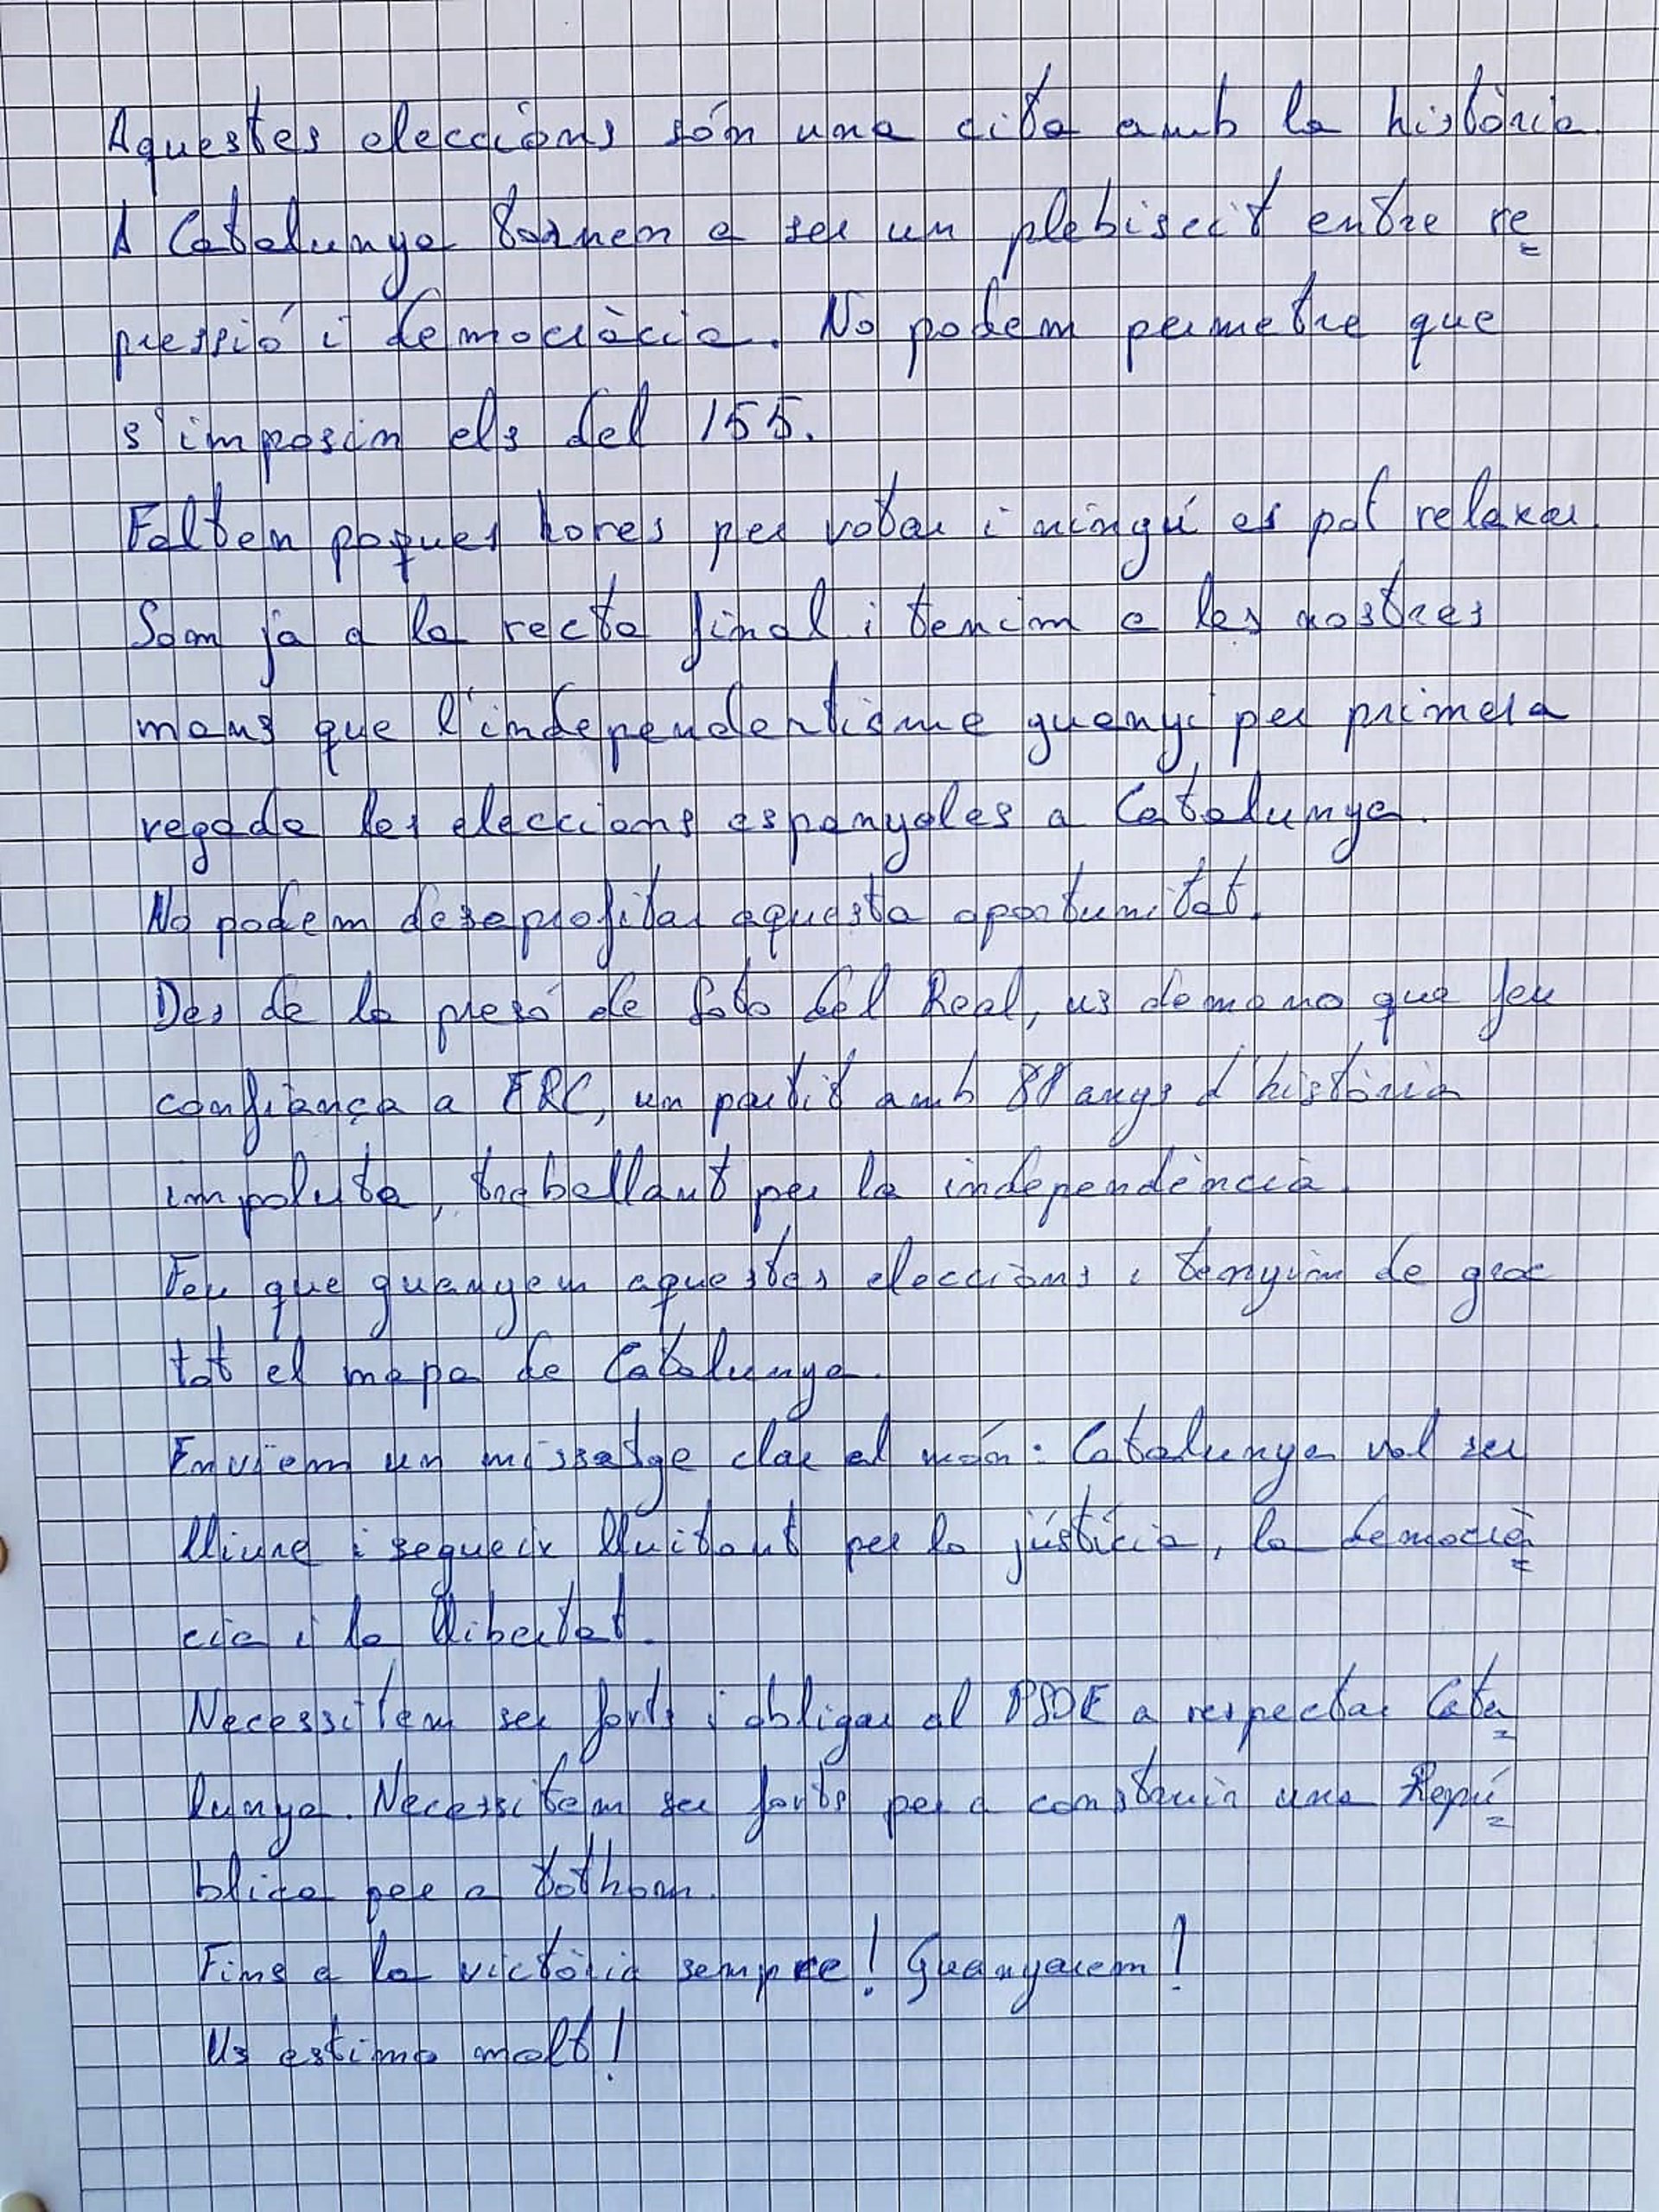 Aquestes eleccions són una cita amb la història.
A Catalunya tornen a ser un plebiscit entre re
pressió i democràcia. No podem permetre que
s'imposin els del 155.
Falten poques hores per votar i ningú es pot relaxar.
Som ja a la recta final i tenim a les nostres
mans que l'independentisme guanyi per primera
vegada les eleccions espanyoles a Catalunya.
No podem desaprofitar aquesta oportunitat.
Des de la presó de Soto del Real, us demano que feu
confiança a ERC, un partit amb 88 anys d'història
impoluta, treballant per la independència.
Feu que guanyem aquestes eleccions i tenyim de groc
tot el mapa de Catalunya.
Enviem un missatge clar al món: Catalunya vol ser
lliure i segueix lluitant per la jústícia, la democrà
cia i la llibertat.
Necessitem ser forts i obligar al PSOE a respectar Cata
lunya. Necessitem ser forts per a construir una Repú
blica per a tothom.
Fins a la victòria sempre! Guanyarem!
Us estimo molt!